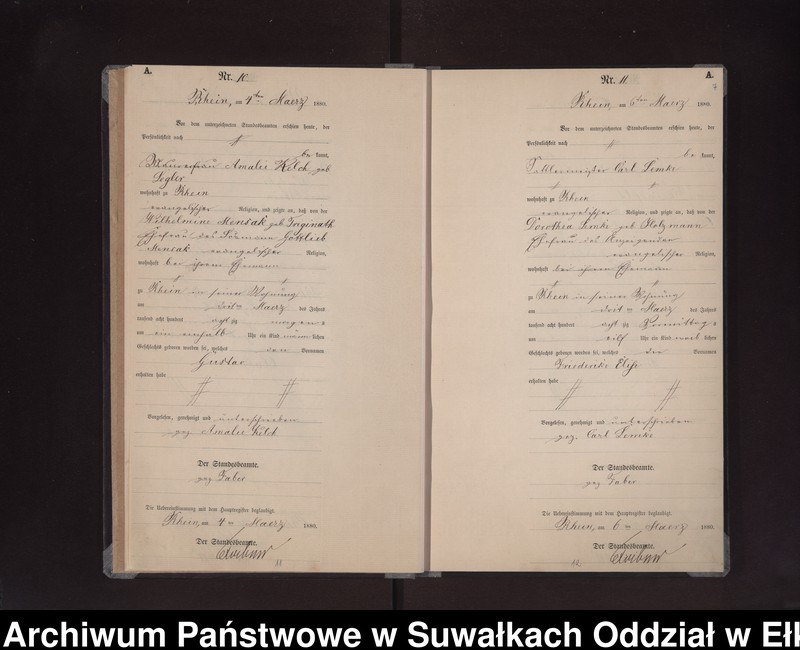 A.
Nr. 10.
Rhein, am 4ten Maerz 1880.
Vor dem unterzeichneten Standesbeamten erschien heute, der
Persönlichkeit nach
be kannt,
Amalie Kelch geb
Segler
wohnhaft zu Rhein
evangelischer Religion, und zeigte an, daß von der
Wilhelmine Mensak geb
Ehefrau des Gottlieb
Mensak evangelischer Religion,
wohnhaft bei ihrem Ehemann
zu Rhein in seiner Wohnung
am Maerz des Jahres
tausend acht hundert acht zig morgens
um ein einhalb Uhr ein Kind männ lichen
Geschlechts geboren worden sei, welches den Vornamen
Gustav
erhalten habe
Vorgelesen, genehmigt und unterschrieben
gez. Amalie Kelch
Der Standesbeamte.
gez Faber
Die Uebereinstimmung mit dem Hauptregister beglaubigt.
Rhein, am 4ten Maerz 1880.
Der Standesbeamte.
11
A.
Nr. 11.
7
Rhein, am 6ten Maerz 1880.
Vor dem unterzeichneten Standesbeamten erschien heute, der
Persönlichkeit nach
be kannt,
Sattlermeister Carl Lemke
wohnhaft zu Rhein
evangelischer Religion, und zeigte an, daß von der
Dorothea Lemke geb Holzmann
Ehefrau des Anzeigenden
evangelischer Religion,
wohnhaft bei ihrem Ehemann
zu Rhein in seiner Wohnung
am Maerz des Jahres
tausend acht hundert acht zig Vormittags
um elf Uhr ein Kind weib lichen
Geschlechts geboren worden sei, welches den Vornamen
Friederike Elise
erhalten habe
Vorgelesen, genehmigt und unterschrieben
gez. Carl Lemke
Der Standesbeamte.
gez Faber
Die Uebereinstimmung mit dem Hauptregister beglaubigt.
Rhein, am 6ten Maerz 1880.
Der Standesbeamte.
12
Archiwum Państwowe w Suwałkach Oddział w Ełk